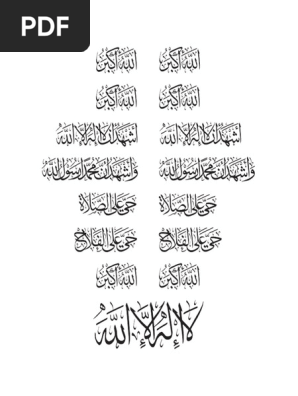 PDF
الله أكبر الله أكبر
الله أكبر الله أكبر
أشهد أن لا إله إلا الله أشهد أن لا إله إلا الله
وأشهد أن محمدا رسول الله وأشهد أن محمدا رسول الله
حي على الصلاة حي على الصلاة
حي على الفلاح حي على الفلاح
الله أكبر الله أكبر
لا إله إلا الله